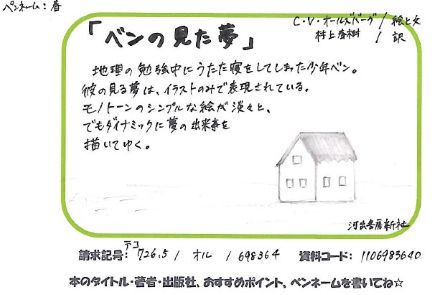 ペンネーム:春
「ベンの見た夢」
C・V・オールズバーグ/絵と文
村上春樹/訳
地理の勉強中にうたた寝をしてしまった少年ベン。
彼の見る夢は、イラストのみで表現されている。
モノトーンのシンプルな絵が淡々と、
でもダイナミックに夢の出来事を
描いてゆく。
河出書房新社
テコ
請求記号: 726.5 / オル / 698364 資料コード: 1106985640
本のタイトル・著者・出版社、おすすめポイント、ペンネームを書いてね☆